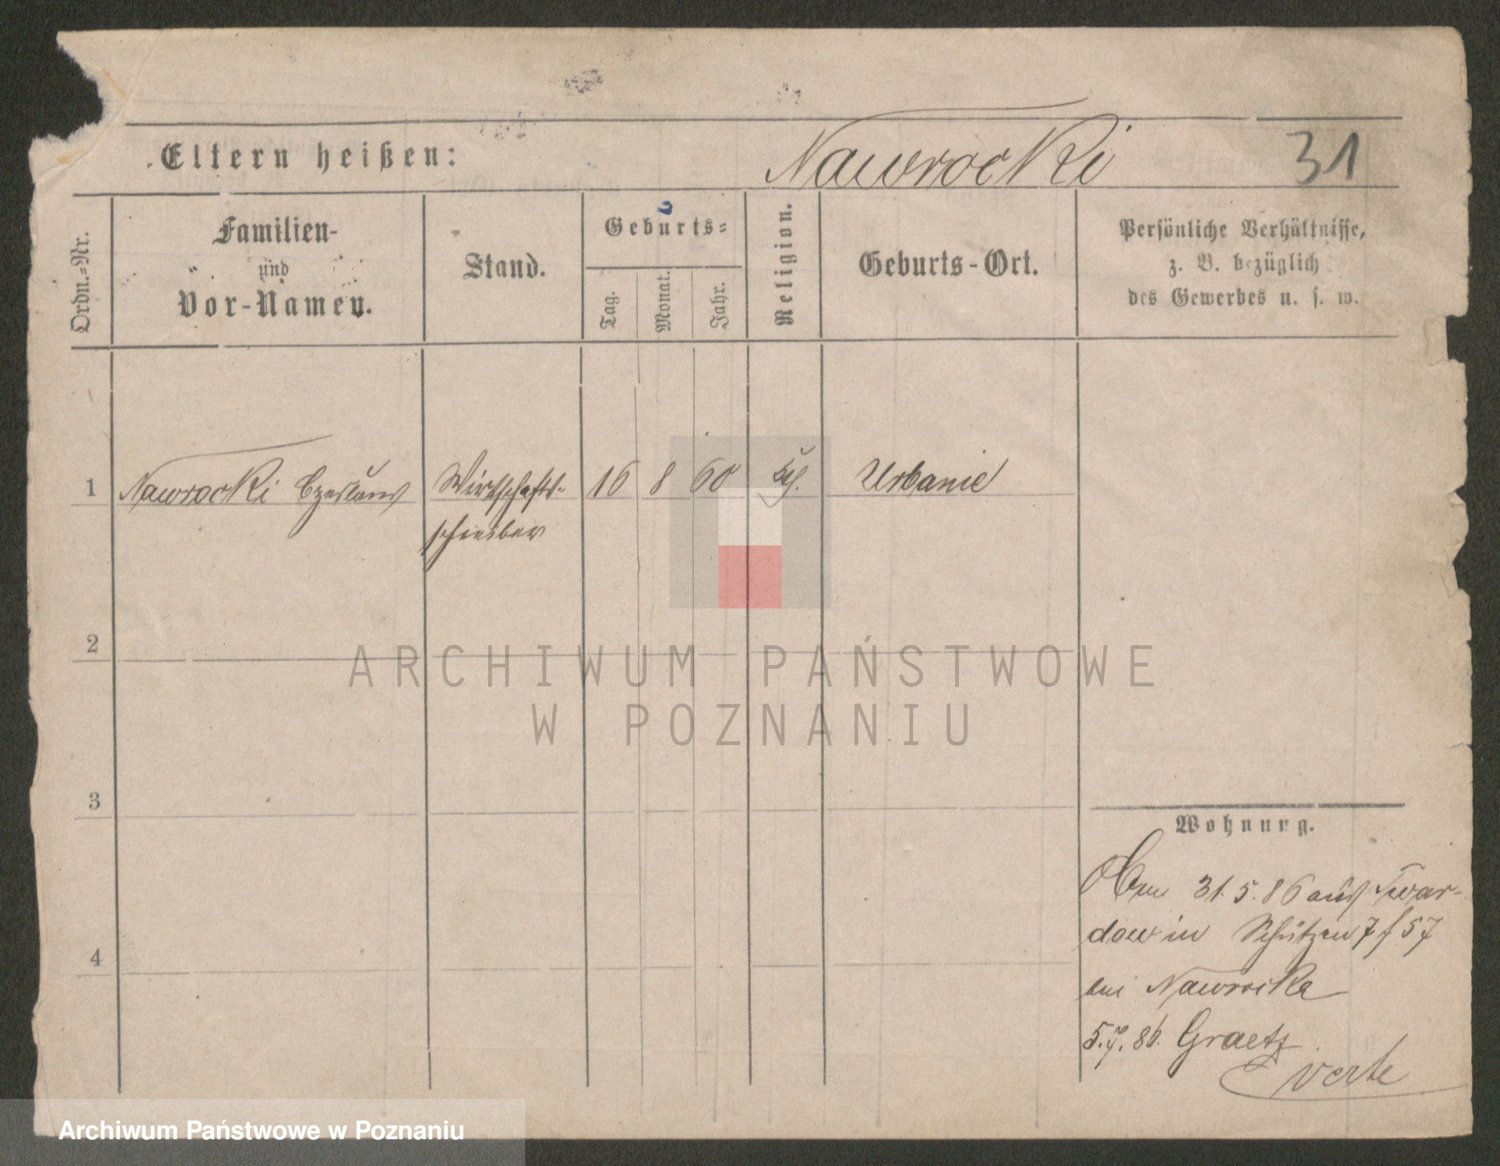 Eltern heißen: Nawrocki 31
Ordn.-Nr. Familien- und Vor-Namen. Stand. Geburts- Tag. Monat. Jahr. Religion. Geburts-Ort. Persönliche Verhältnisse, z. B. bezüglich des Gewerbes u. s. w.
1 Nawrocki Czeslaus Wirtschafts- 16 8 60 kth. Urbanie
schreiber
2
3
4
Wohnung.
31.5.86 aus Twar-
dow in Schützen 7 f 57
bei Nawrocka
5.7.86. Graetz
verte
ARCHIWUM PAŃSTWOWE
W POZNANIU
Archiwum Państwowe w Poznaniu